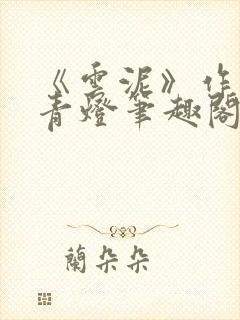 《雲泥》作
青燈筆趣閣
蘭朵朵